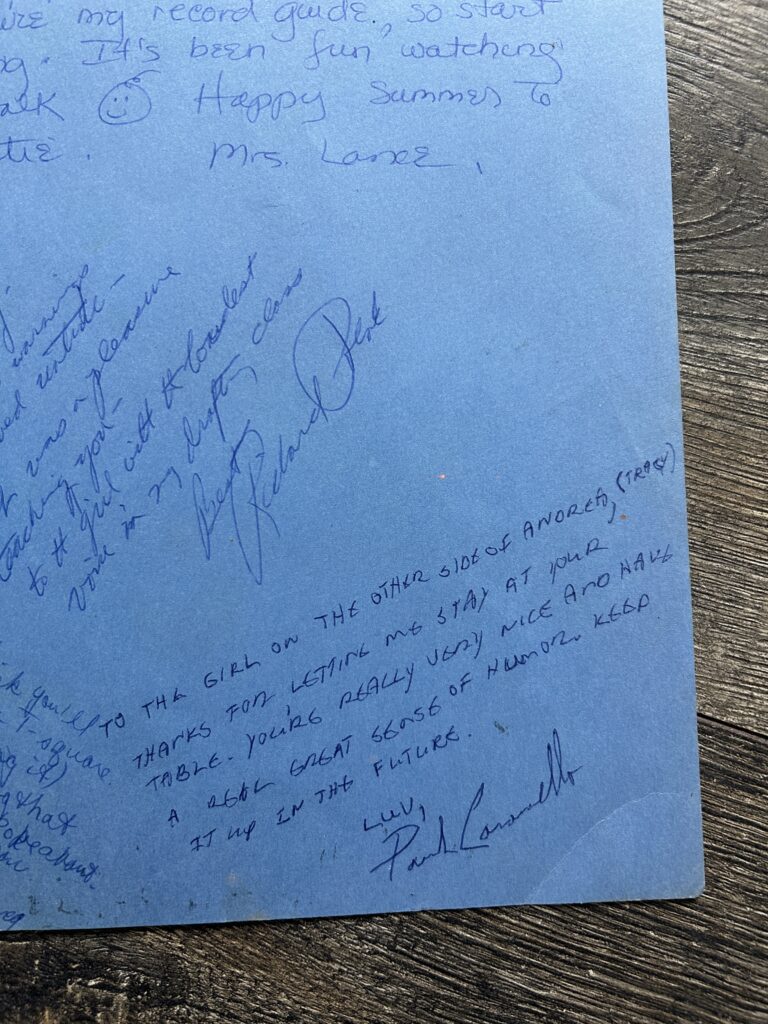 my record guide, so start
It's been fun watching
Happy Summer to
Mrs. Lance.
warnings
was a pleasure
teaching you—
to tt girl with tt loudest
voice in my drafting class
Best,
Richard
TO THE GIRL ON THE OTHER SIDE OF ANDREA, (TRACY)
THANKS FOR LETTING ME STAY AT YOUR
TABLE. YOU'RE REALLY VERY NICE AND HAVE
A REAL GREAT SENSE OF HUMOR. KEEP
IT UP IN THE FUTURE.
LUV,
Paul
you'll
T-square.
that